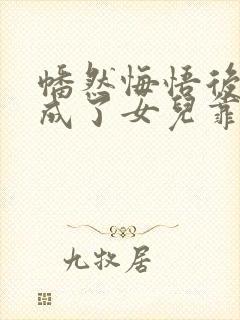 幡然悔悟後
成了女兒靠
九牧居